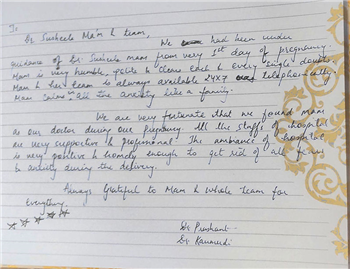 To
Dr. Susheela Mam & team,
We had been under
guidance of Dr. Susheela mam from very 1st day of pregnancy.
Mam is very humble, polite & clears each & every single doubt.
Mam & her team is always available 24x7 telephonically.
Mam "calms" all the anxiety like a family.
We are very fortunate that we found mam
as our doctor during our pregnancy. All the staffs of hospital
are very supportive & professional. The ambiance of hospital
is very positive & homely enough to get rid of all fears
& anxiety during the delivery.
Always Grateful to Mam & whole team for
Everything.
Dr. Prashant
Dr. Kaumudi